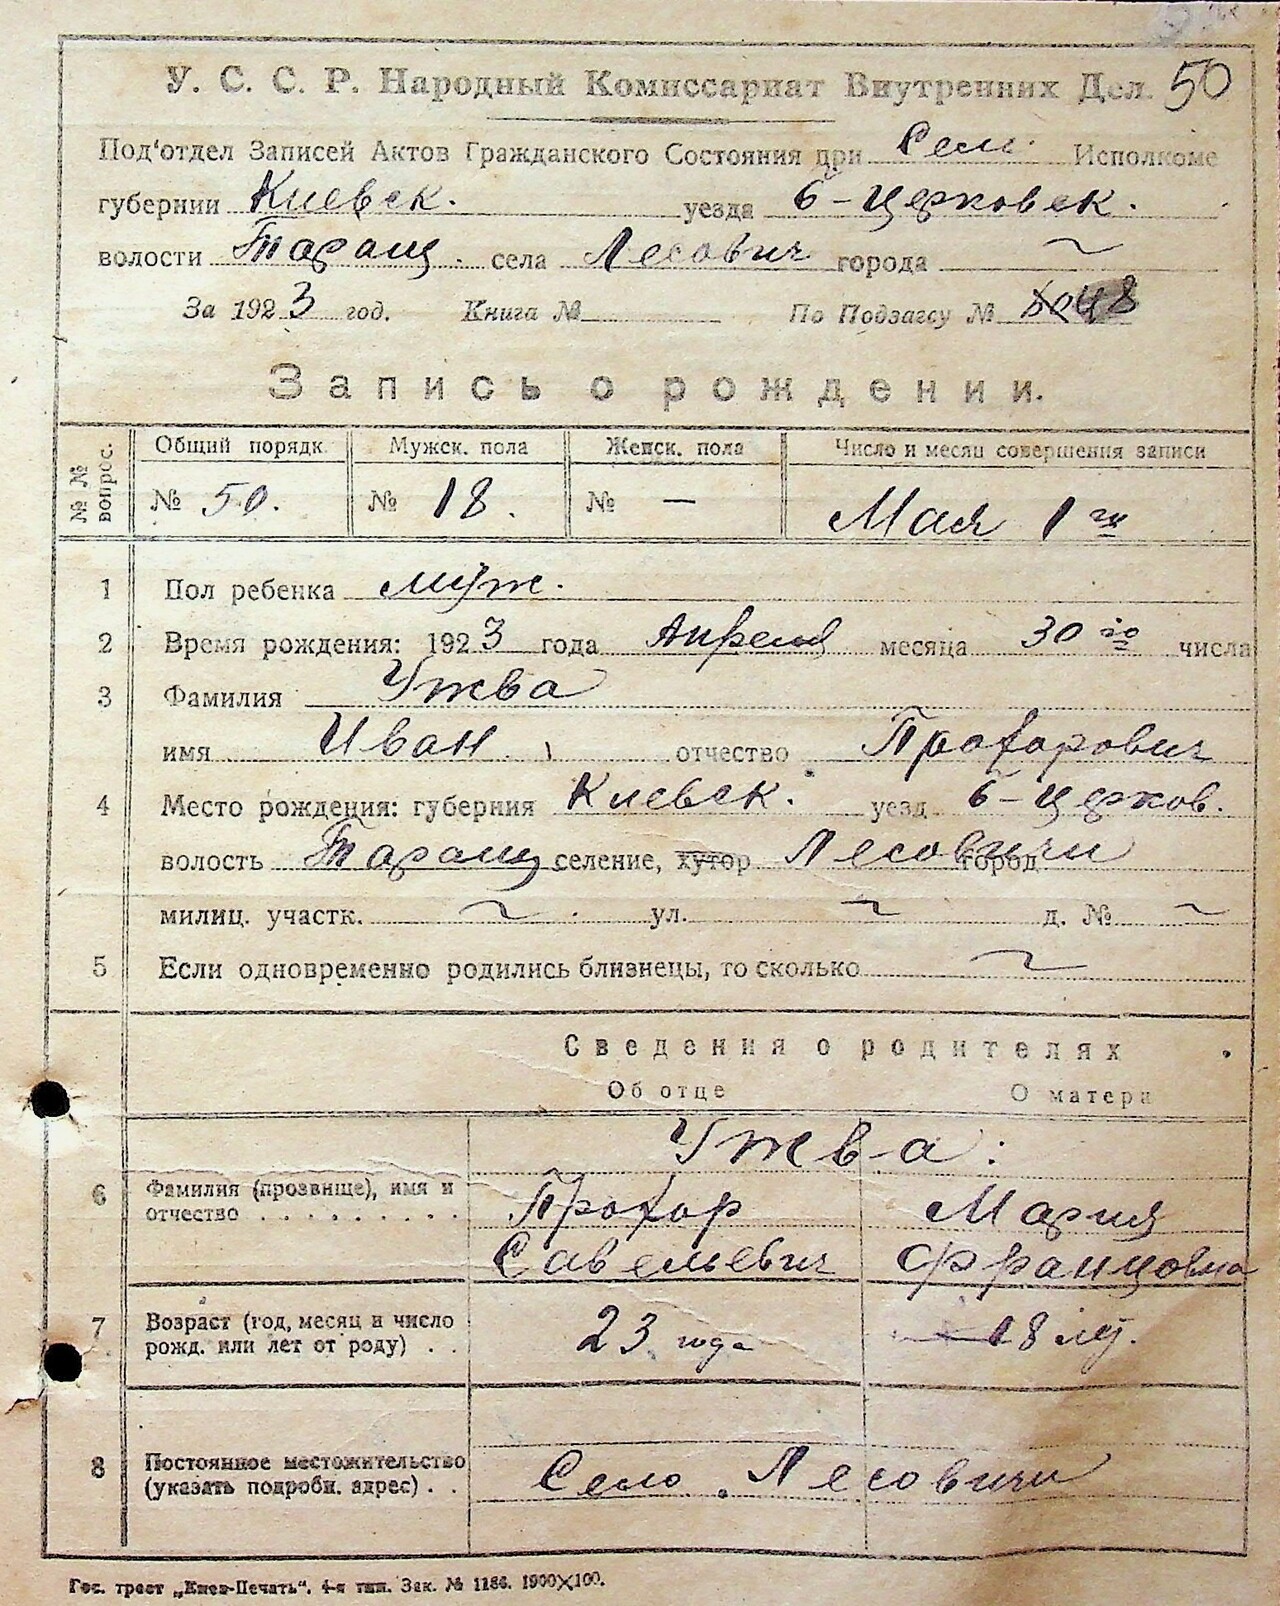 У. С. С. Р. Народный Комиссариат Внутренних Дел. 50
Под'отдел Записей Актов Гражданского Состояния при Сель. Исполкоме
губернии Киевск. уезда Б-Церковск.
волости Таращ. села Лесович города ~
За 1923 год. Книга № По Подзагсу № 48
Запись о рождении.
№ № вопрос. Общий порядк. Мужск. пола Женск. пола Число и месяц совершения записи
№ 50. № 18. № — Мая 1 го
1 Пол ребенка муж.
2 Время рождения: 1923 года Апреля месяца 30 го числа
3 Фамилия Ужва
имя Иван отчество Прохорович
4 Место рождения: губерния Киевск. уезд Б-Церков.
волость Таращ селение, хутор Лесовичи город
милиц. участк. ~ ул. ~ д. № ~
5 Если одновременно родились близнецы, то сколько ~
Сведения о родителях
Об отце О матери
Ужва:
6 Фамилия (прозвище), имя и Прохор Мария
отчество . . . . . . . . . Савельевич Францовна
7 Возраст (год, месяц и число 23 года 18 лет.
рожд. или лет от роду) . .
8 Постоянное местожительство Село Лесовичи
(указать подробн. адрес) . .
Гос. трест „Киев-Печать". 4-я тип. Зак. № 1186. 1900×100.